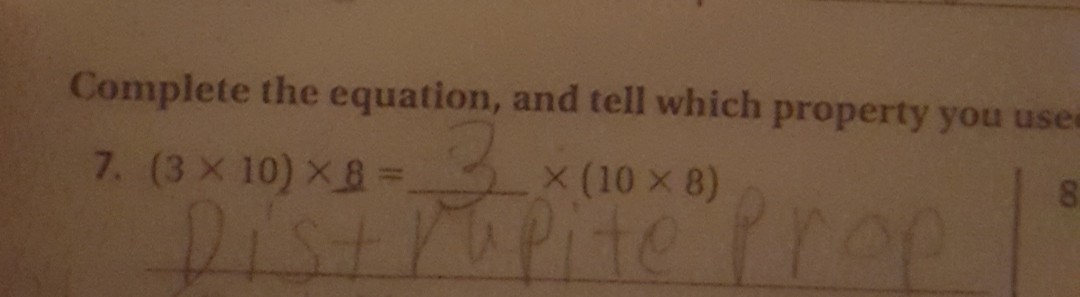 Complete the equation, and tell which property you use
7. (3 × 10) × 8 = 3 × (10 × 8)
8
Distrupite prop